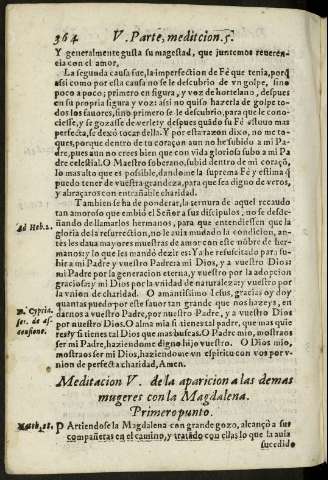 364 V. Parte, meditcion. 5.
Y generalmente gusta su magestad, que juntemos reveren-
cia con el amor,
La segunda causa fue, la imperfection de Fé que tenia, porq̃
assi como por esta causa no se le descubrio de vn golpe, sino
poco a poco; primero en figura, y voz de hortelano, despues
en su propria figura y voz: assi no quiso hazerla de golpe to-
dos los favores, sino primero se le descubrio, para que le cono-
ciesse, y se gozasse de verle; y despues quãdo su Fé estuvo mas
perfecta, se dexó tocar della. Y por esta razon dixo, no me to-
ques, porque dentro de tu coraçon aun no he subido a mi Pa-
dre, pues aun no crees bien que con vida gloriosa subo a mi Pa
dre celestial. O Maestro soberano, subid dentro de mi coraçõ,
lo mas alto que es possible, dandome la suprema Fé y estima q̃
puedo tener de vuestra grandeza, para que sea digno de veros,
y abraçaros con entrañable charidad.
Tambien se ha de ponderar, la ternura de aquel recaudo
tan amoroso que embió el Señor a sus discipulos, no se desde-
Ad Heb. 2. ñando de llamarlos hermanos, para que entendiessen que la
gloria de la resurrection, no le auia mudado la condicion, an-
tes les daua mayores muestras de amor con este nõbre de her-
manos: y lo que les mandò dezir es: Ya he resucitado para su-
bir a mi Padre y vuestro Padre a mi Dios, y a vuestro Dios: a
mi Padre por la generacion eterna, y vuestro por la adopcion
graciosa: y mi Dios por la vnidad de naturaleza: y vuestro por
la vnion de charidad. O amantissimo Iesus, gracias os doy
quantas puedo por este fauor tan grande que nos hazeys, en
D. Cypria. darnos a vuestro Padre, por nuestro Padre, y a vuestro Dios
ser. de as- por nuestro Dios. O alma mia si tienes tal padre, que mas quie
censione. res? y si tienes tal Dios que mas buscas. O Padre mio, mostraos
ser mi Padre, haziendome digno hijo vuestro. O Dios mio,
mostraos ser mi Dios, haziendome vn espiritu con vos por v-
nion de perfecta charidad, Amen.
Meditacion V. de la aparicion a las demas
mugeres con la Magdalena.
Primero punto.
Math. 28. PArtiendose la Magdalena con grande gozo, alcançò a sus
compañeras en el camino, y tratãdo con ellas lo que la auia
sucedido